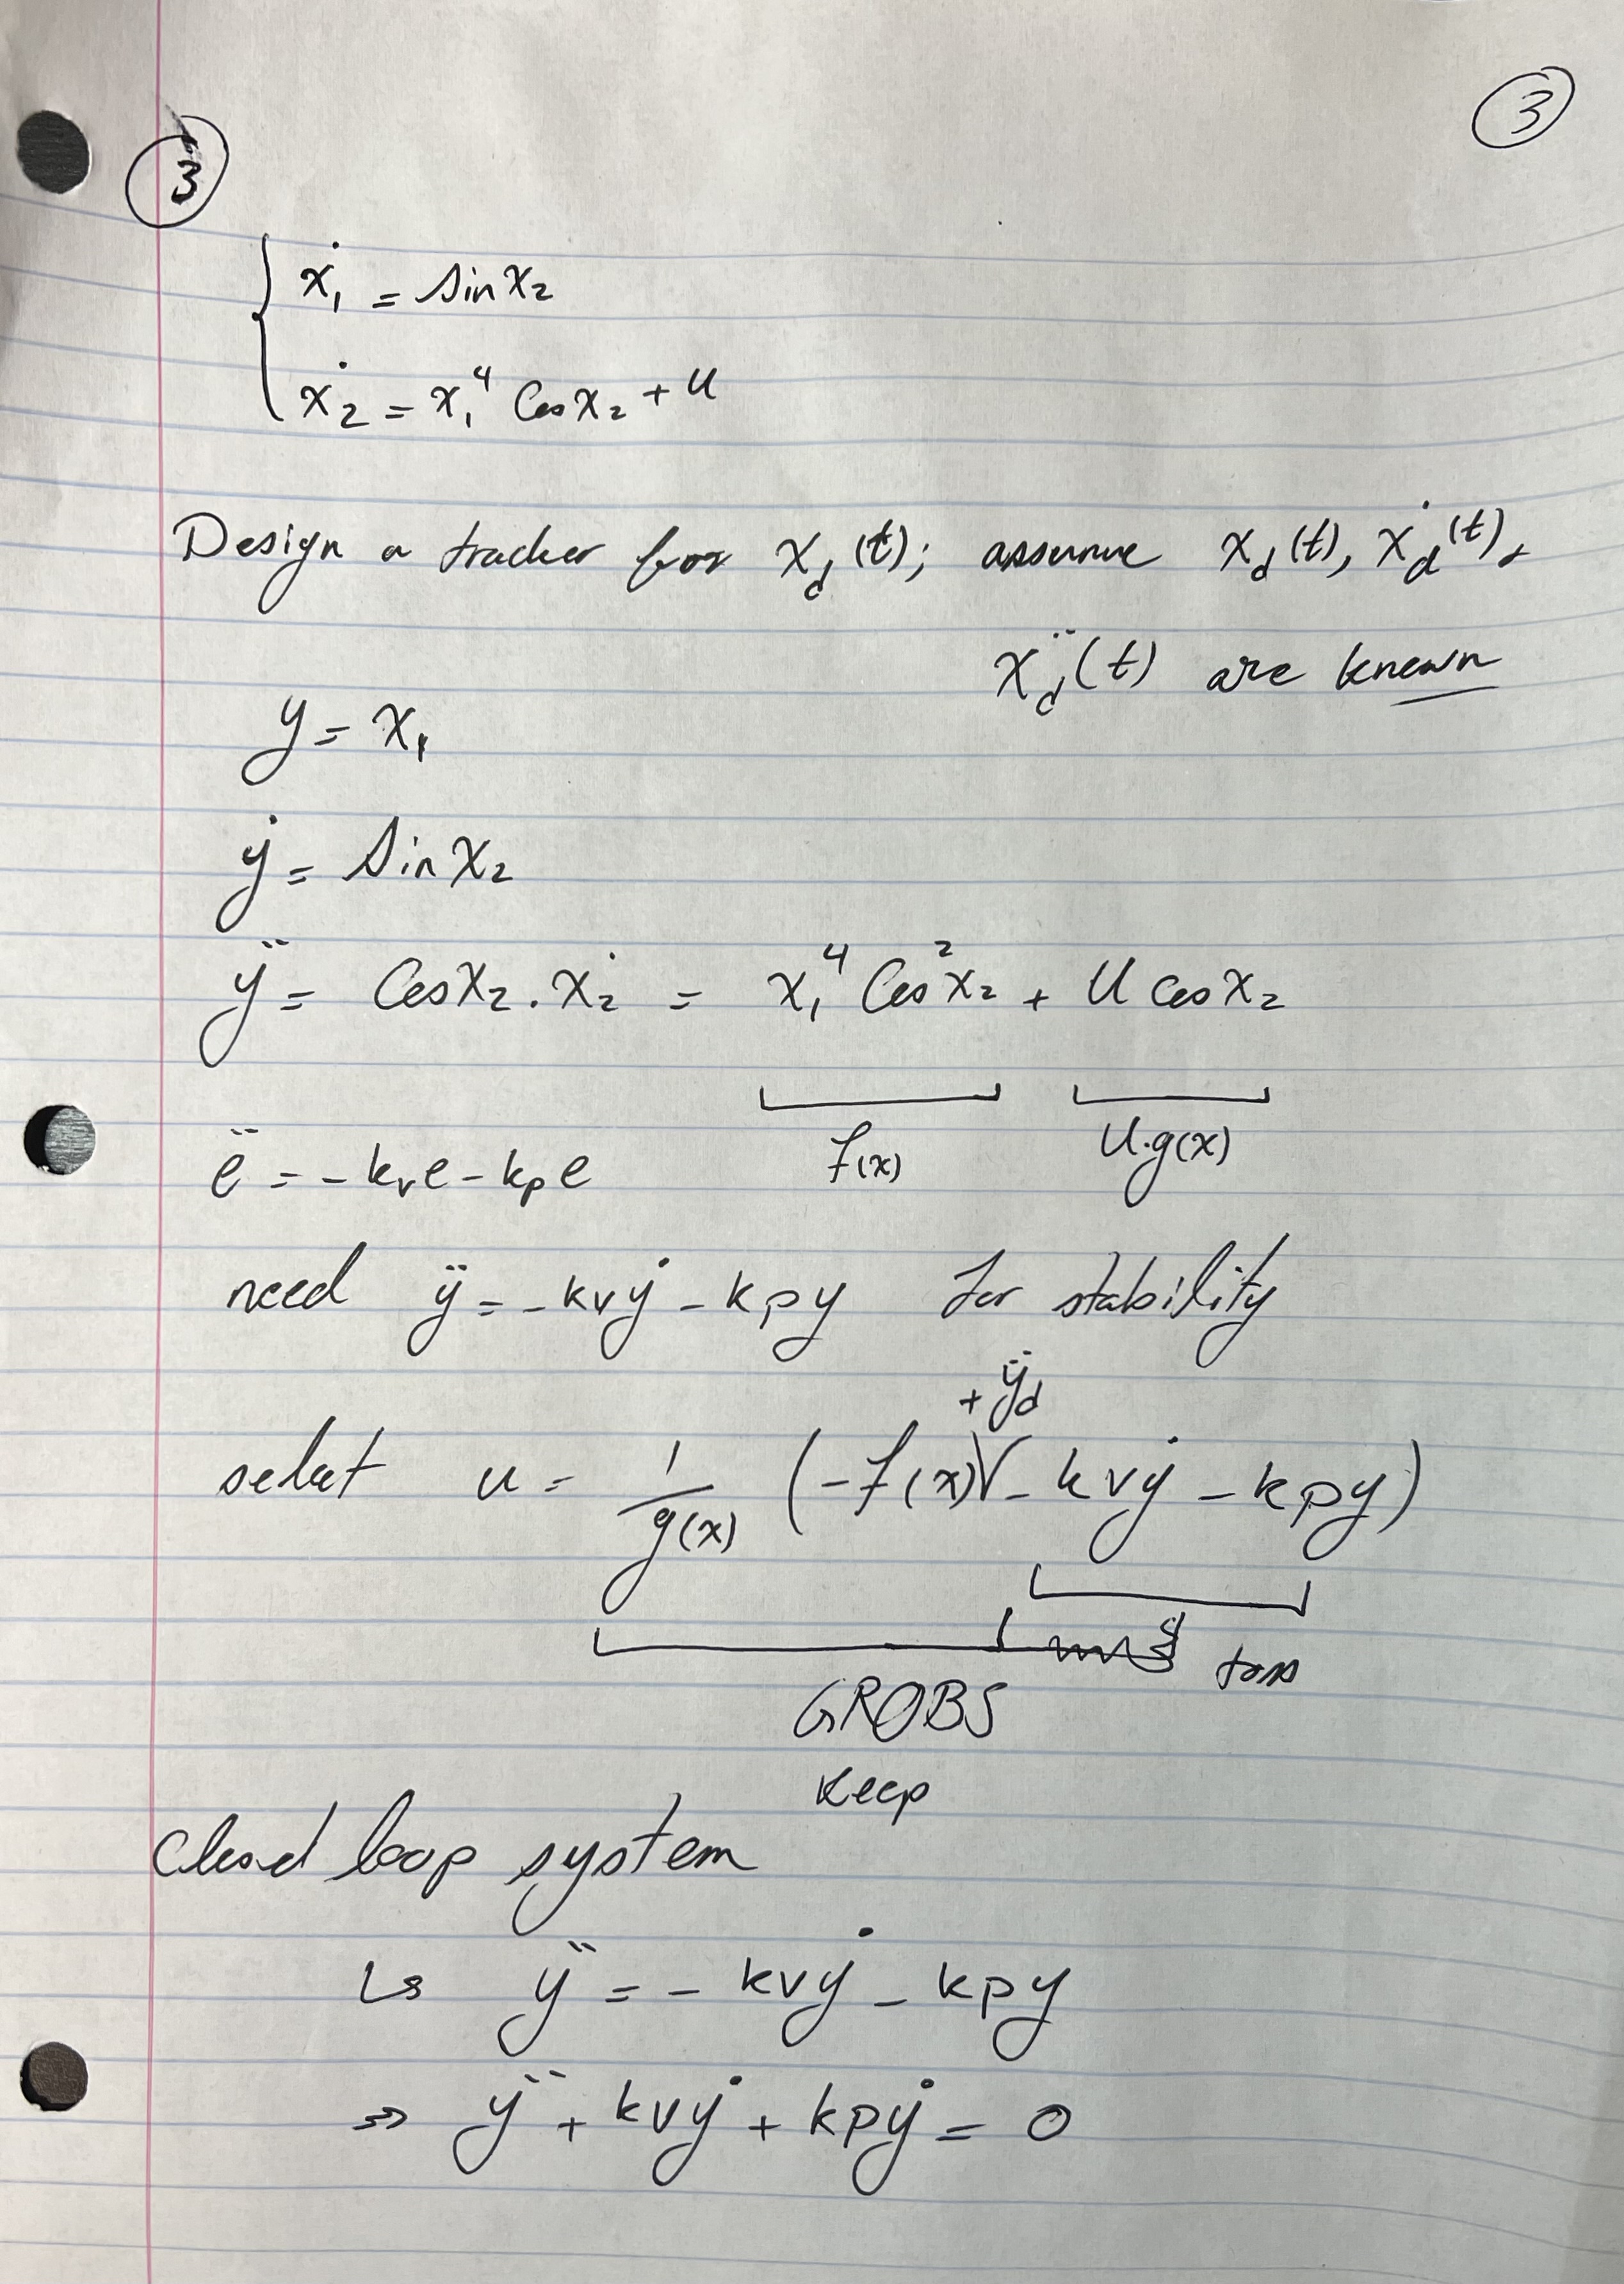 3
3
ẋ₁ = sin x₂
ẋ₂ = x₁⁴ cos x₂ + u
Design a tracker for x_d(t); assume x_d(t), ẋ_d(t),
ẍ_d(t) are known
y = x₁
ẏ = sin x₂
ÿ = cos x₂ . ẋ₂ = x₁⁴ cos² x₂ + u cos x₂
f(x) u·g(x)
ë = -kve - kpe
need ÿ = -kvẏ - kpy for stability
+ ÿd
select u = 1/g(x) (-f(x) - kvẏ - kpy)
GROBS
keep
Closed loop system
↳ ÿ = - kvẏ - kpy
⇒ ÿ + kvẏ + kpẏ = 0